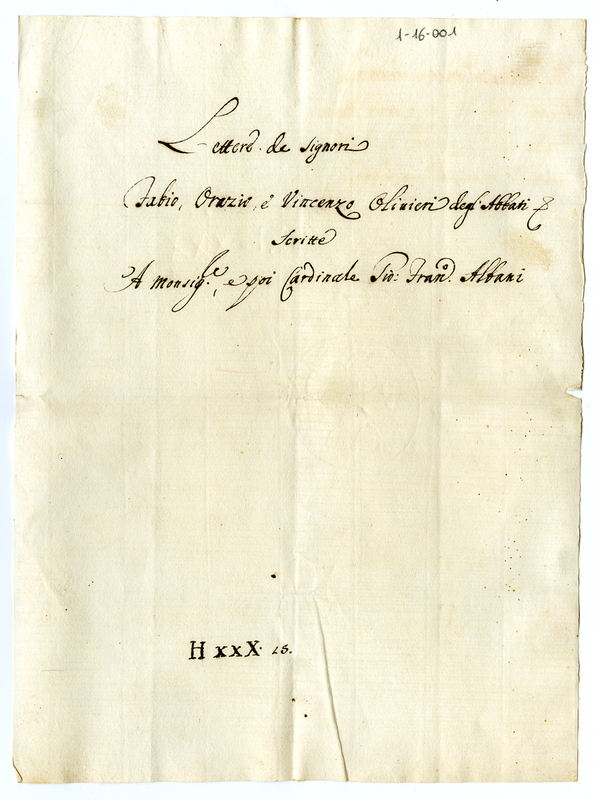 1-16-001
Lettere de Signori
Fabio, Orazio, e Vincenzo Olivieri degl'Abbati &
Scritte
A Monsig.re, e poi Cardinale Gio: Fran.co Albani
H xxX. 15.